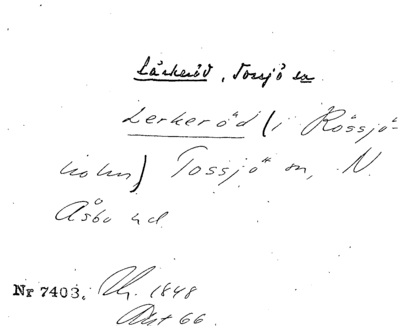 Lärkeröd, Tossjö sn
Lerkeröd (i Rössjö-
holm) Tossjö sn, N.
Åsbo hd
Nr 7403. 1848
Akt 66.